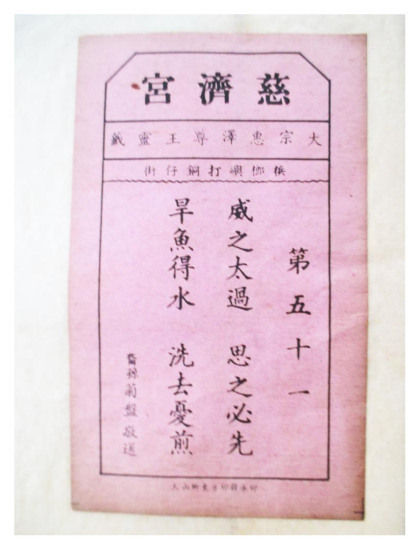 慈濟宮
大宗惠澤尊王靈籤
檳榔嶼打銅仔街
第五十一
威之太過 思之必先
旱魚得水 洗去憂煎
菊盤敬送